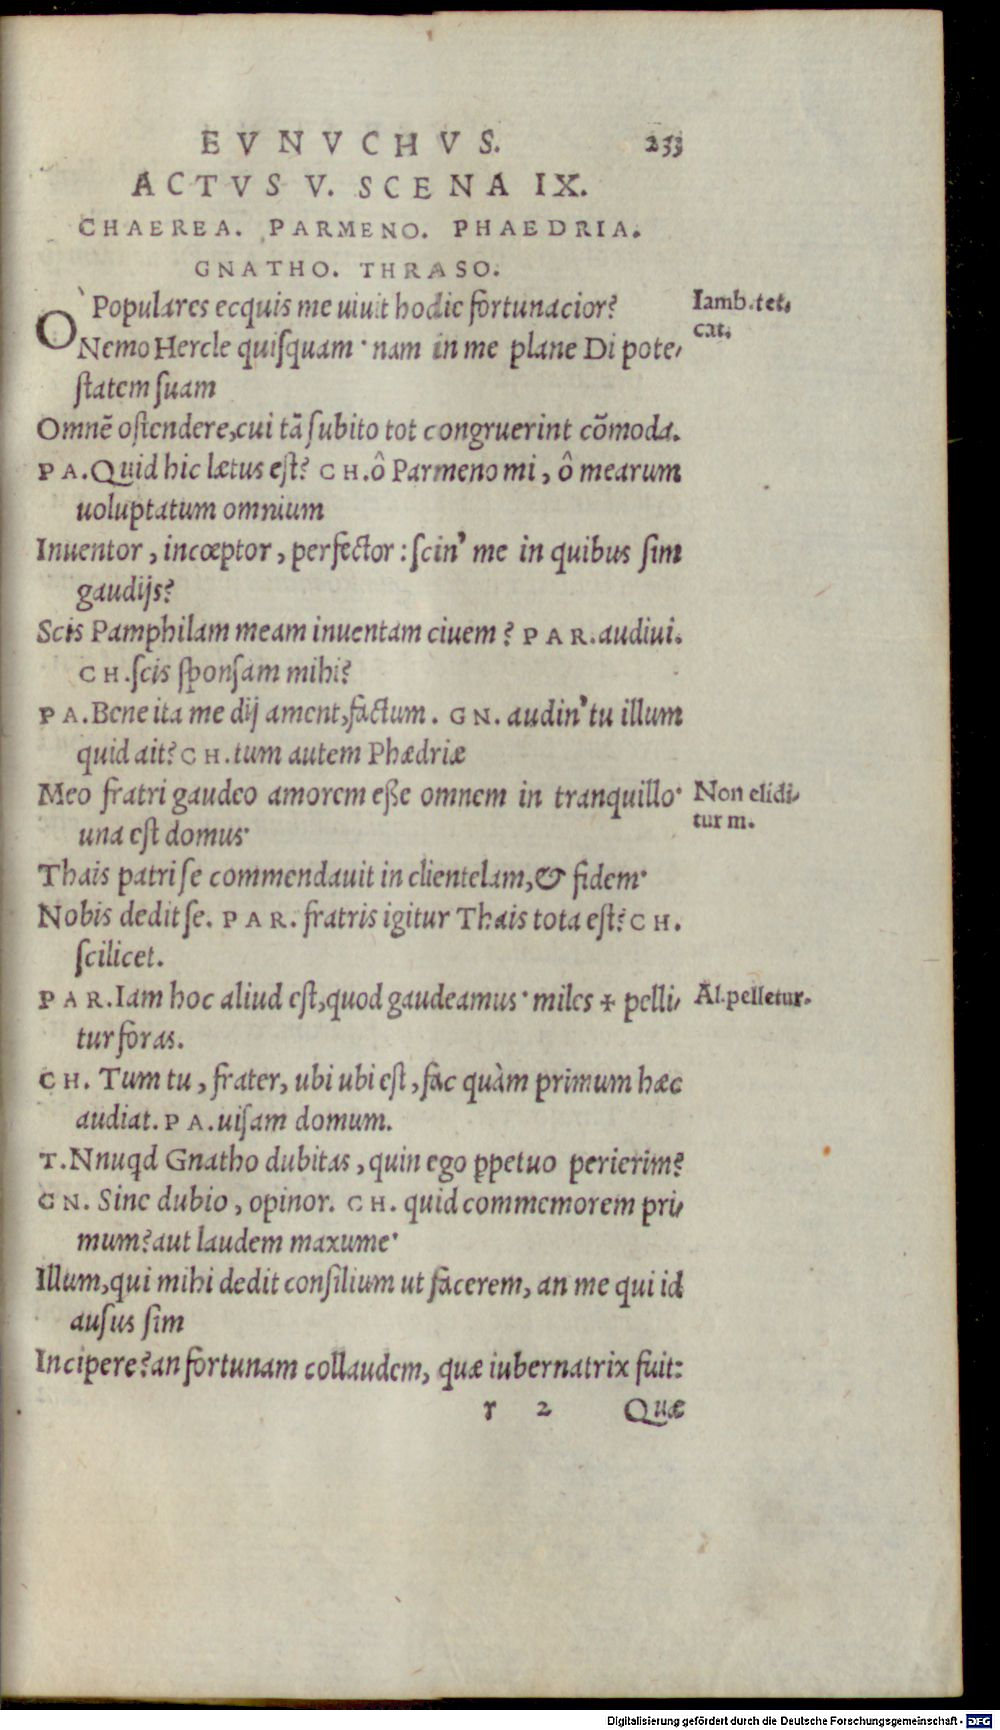 EVNVCHVS. 233
ACTVS V. SCENA IX.
CHAEREA. PARMENO. PHAEDRIA.
GNATHO. THRASO.
Ò Populares ecquis me uiuit hodie fortunacior? Iamb.tet.
cat.
Nemo Hercle quiſquam· nam in me plane Di pote-
ſtatem ſuam
Omnē oſtendere,cui tā ſubito tot congruerint cōmoda.
PA.Quid hic lætus eſt? CH.ô Parmeno mi, ô mearum
uoluptatum omnium
Inuentor, incœptor, perfector: ſcin' me in quibus ſim
gaudijs?
Scis Pamphilam meam inuentam ciuem? PAR.audiui.
CH.ſcis ſponſam mihi?
PA.Bene ita me dij ament,factum. GN. audin' tu illum
quid ait? CH.tum autem Phædriæ
Meo fratri gaudeo amorem eße omnem in tranquillo· Non elidi-
tur m.
una eſt domus·
Thais patri ſe commendauit in clientelam,& fidem·
Nobis dedit ſe. PAR. fratris igitur Thais tota eſt? CH.
ſcilicet.
PAR.Iam hoc aliud eſt,quod gaudeamus· miles + pelli- Al.pelletur.
tur foras.
CH. Tum tu, frater, ubi ubi eſt, fac quàm primum hæc
audiat. PA.uiſam domum.
T.Nnuqd Gnatho dubitas, quin ego ꝑpetuo perierim?
GN. Sine dubio, opinor. CH. quid commemorem pri-
mum? aut laudem maxume·
Illum,qui mihi dedit conſilium ut facerem, an me qui id
auſus ſim
Incipere? an fortunam collaudem, quæ iubernatrix fuit:
r 2 Quæ
Digitalisierung gefördert durch die Deutsche Forschungsgemeinschaft - DFG